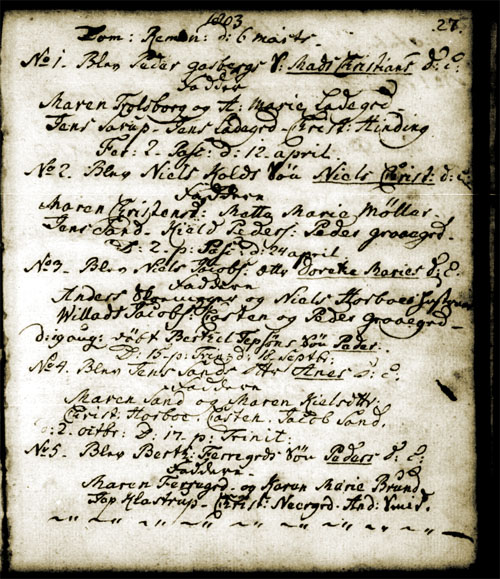 1803 28.
Dom: Remin: d: 6 marts.
No 1. Blev Peder Gasbergs S: Mads Christians d: C:
Faddere
Maren Trolsborg og A: Marie Ladegrd
Jens Torup. Jens Ladegrd. Christ: Hinding
Fer: 2. Pasc: d: 12. april.
No 2. Blev Niels Holds Søn Niels Christ: d: C:
Faddere
Maren Christensd: Mette Marie Møller.
Jens Sand. Kield Peders: Peder graaegrd.
D: 2. p: Pasc: d: 24 april
No 3. Blev Niels Jacobs: Dtr Doretke Maries d: C:
Faddere
Anders og Niels Horboes Hustruer
Willads Jacobs: Casten og Peder graaegrd
d: 19 aug: døbt Bertel Jepsøns Søn Peder.
D: 15. p: Trin: d: 18 Septbr:
No 4. Blev Jens Sands Dtr Anes d: C:
Faddere
Maren Sand og Maren Kielsdtr:
Christ: Horboe. Casten. Jacob Sand.
d: 2. octbr: D: 17. p: Trinit:
No 5. Blev Berth: Ferregrds Søn Peders d: C:
Faddere
Maren Ferregrd. og Karen Marie Brund
Jep Klastrup. Christ: Neergrd. And: Smed.